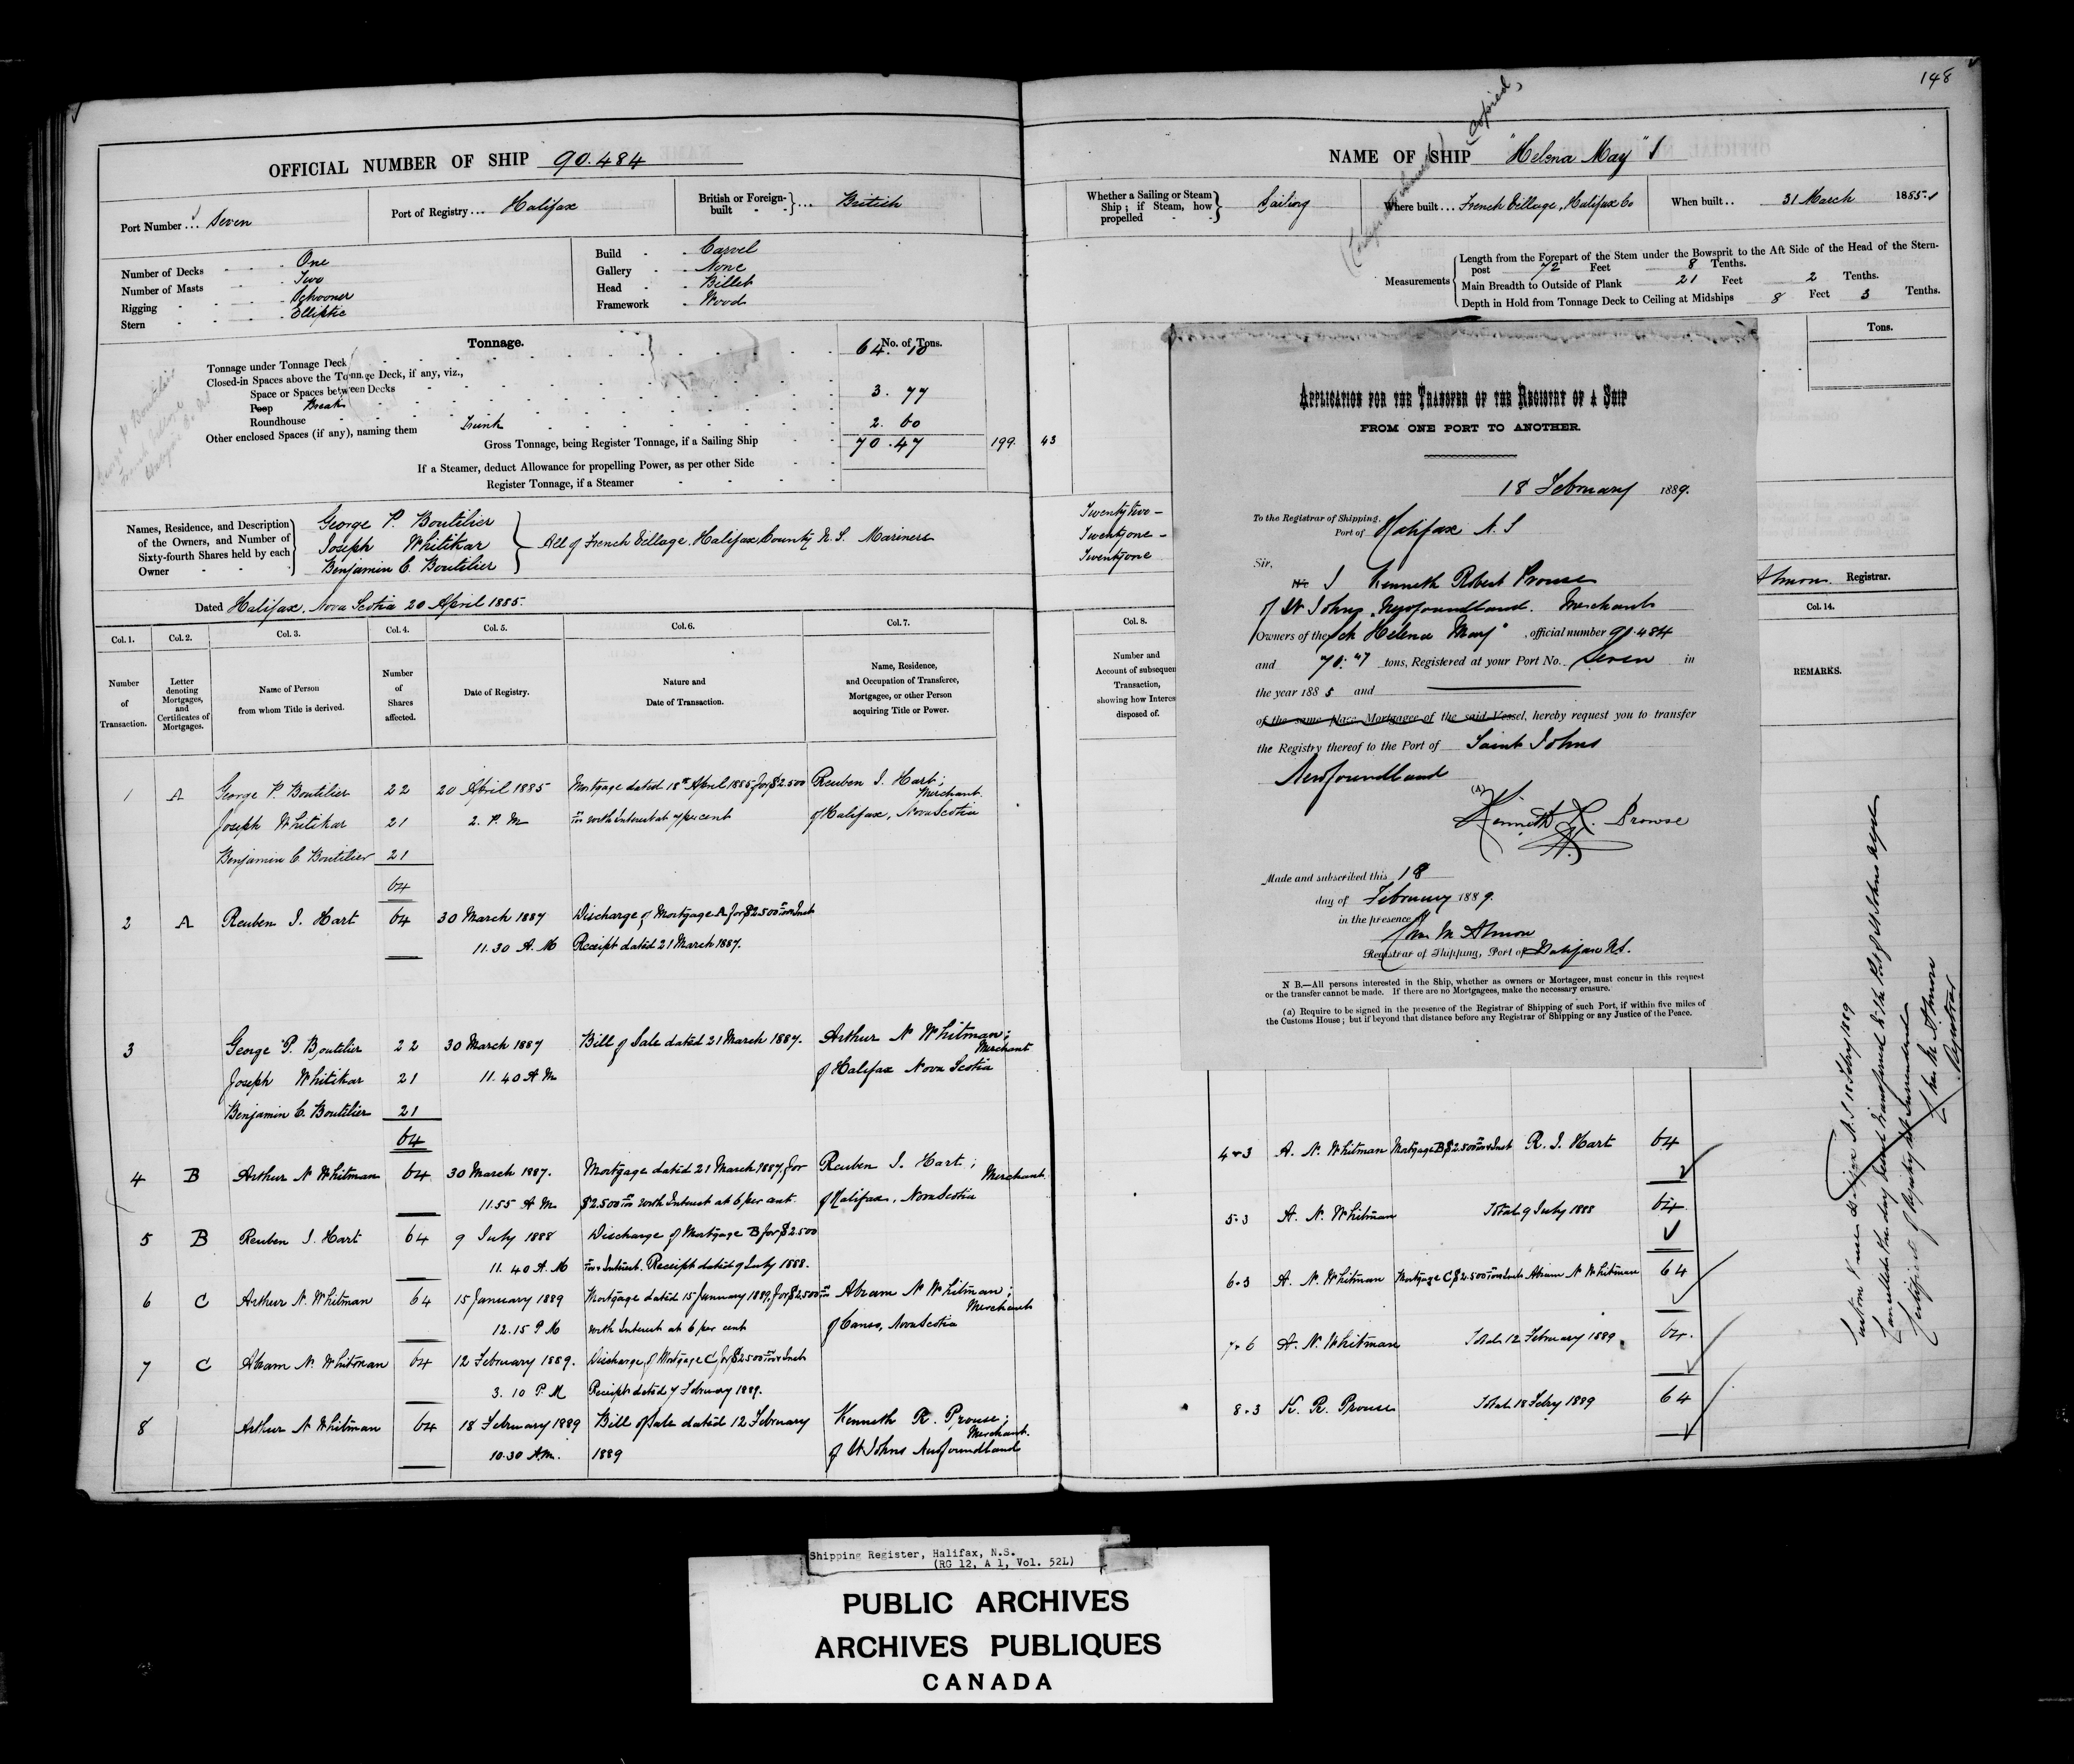 148
OFFICIAL NUMBER OF SHIP 90.484
Port Number... Seven
Port of Registry... Halifax
British or Foreign-built ... British
Number of Decks One
Number of Masts Two
Rigging Schooner
Stern Elliptic
Build Carvel
Gallery None
Head Billet
Framework Wood
Tonnage.
No. of Tons.
Tonnage under Tonnage Deck 64.10
Closed-in Spaces above the Tonnage Deck, if any, viz.,
Space or Spaces between Decks
Poop Break 3.77
Roundhouse
Other enclosed Spaces (if any), naming them Trunk 2.60
Gross Tonnage, being Register Tonnage, if a Sailing Ship 70.47 199.43
If a Steamer, deduct Allowance for propelling Power, as per other Side
Register Tonnage, if a Steamer
Names, Residence, and Description of the Owners, and Number of Sixty-fourth Shares held by each Owner
George P. Boutilier
Joseph Whitikar
Benjamin C. Boutilier
All of French Village. Halifax County N.S. Mariners
Dated Halifax, Nova Scotia 20 April 1885.
Col. 1. Col. 2. Col. 3. Col. 4. Col. 5. Col. 6. Col. 7.
Number of Transaction.
Letter denoting Mortgages, and Certificates of Mortgages.
Name of Person from whom Title is derived.
Number of Shares affected.
Date of Registry.
Nature and Date of Transaction.
Name, Residence, and Occupation of Transferee, Mortgagee, or other Person acquiring Title or Power.
1 A George P. Boutilier 22 20 April 1885 Mortgage dated 18th April 1885 for $2.500 Reuben I. Hart; Merchant
Joseph Whitikar 21 2. P. M with Interest at 7 per cent of Halifax, Nova Scotia
Benjamin C. Boutilier 21
64
2 A Reuben I. Hart 64 30 March 1887 Discharge of Mortgage A for $2.500 & Inst
11.30 A. M Receipt dated 21 March 1887.
3 George P. Boutilier 22 30 March 1887 Bill of Sale dated 21 March 1887. Arthur N Whitman; Merchant
Joseph Whitikar 21 11.40 A M of Halifax Nova Scotia
Benjamin C. Boutilier 21
64
4 B Arthur N Whitman 64 30 March 1887. Mortgage dated 21 March 1887, for Reuben I. Hart; Merchant
11.55 A M $2.500 with Interest at 6 per cent. of Halifax, Nova Scotia
5 B Reuben I. Hart 64 9 July 1888 Discharge of Mortgage B for $2.500
11.40 A. M & Interest. Receipt dated 9 July 1888.
6 C Arthur N. Whitman 64 15 January 1889 Mortgage dated 15 January 1889, for $2.500 Abram N Whitman; Merchant
12.15 P M with Interest at 6 per cent of Canso, Nova Scotia
7 C Abram N. Whitman 64 12 February 1889. Discharge of Mortgage C for $2.500 & Inst
3.10 P. M Receipt dated 7 February 1889.
8 Arthur N Whitman 64 18 February 1889 Bill of Sale dated 12 February Kenneth R. Prowse; Merchant
10.30 A.M. 1889 of St Johns Newfoundland
NAME OF SHIP "Helena May"
Copied
Whether a Sailing or Steam Ship; if Steam, how propelled Sailing
Where built... French Village, Halifax Co
When built.. 31 March 1885
Measurements
Length from the Forepart of the Stem under the Bowsprit to the Aft Side of the Head of the Stern-post 72 Feet 8 Tenths.
Main Breadth to Outside of Plank 21 Feet 2 Tenths.
Depth in Hold from Tonnage Deck to Ceiling at Midships 8 Feet 3 Tenths.
Tons.
Twenty two
Twenty one
Twenty one
Almon. Registrar.
Col. 8. Col. 14.
Number and Account of subsequen Transaction, showing how Interes disposed of.
REMARKS.
APPLICATION FOR THE TRANSFER OF THE REGISTRY OF A SHIP
FROM ONE PORT TO ANOTHER.
18 February 1889.
To the Registrar of Shipping,
Port of Halifax N. S
Sir,
We I Kenneth Robert Prowse
of St Johns Newfoundland. Merchant
Owners of the Sch Helena May", official number 90.484
and 70.47 tons, Registered at your Port No. Seven in
the year 1885 and
of the same place Mortgagee of the said Vessel, hereby request you to transfer
the Registry thereof to the Port of Saint Johns
Newfoundland
(A) Kenneth R. Prowse
Made and subscribed this 18
day of February 1889.
in the presence of
Wm M Almon
Registrar of Shipping, Port of Halifax N.S.
N B.—All persons interested in the Ship, whether as owners or Mortagees, must concur in this request
or the transfer cannot be made. If there are no Mortgagees, make the necessary erasure.
(a) Require to be signed in the presence of the Registrar of Shipping of such Port, if within five miles of
the Customs House; but if beyond that distance before any Registrar of Shipping or any Justice of the Peace.
4 & 3 A. N. Whitman Mortgage B $2.500 & Inst R. I. Hart 64
5.3 A. N. Whitman Total 9 July 1888 64
6.3 A. N. Whitman Mortgage C $2.500 & Inst Abram N Whitman 64
7.6 A. N. Whitman Total 12 February 1889. 64
8.3 K. R. Prowse Total 18 Febry 1889 64
Custom House Halifax N.S 18 Febry 1889
Cancelled this day and transferred to the Port of St Johns Nfld
Certificate of Registry surrendered
Wm M. Almon
Registrar
Shipping Register, Halifax, N.S.
(RG 12, A 1, Vol. 52L)
PUBLIC ARCHIVES
ARCHIVES PUBLIQUES
CANADA